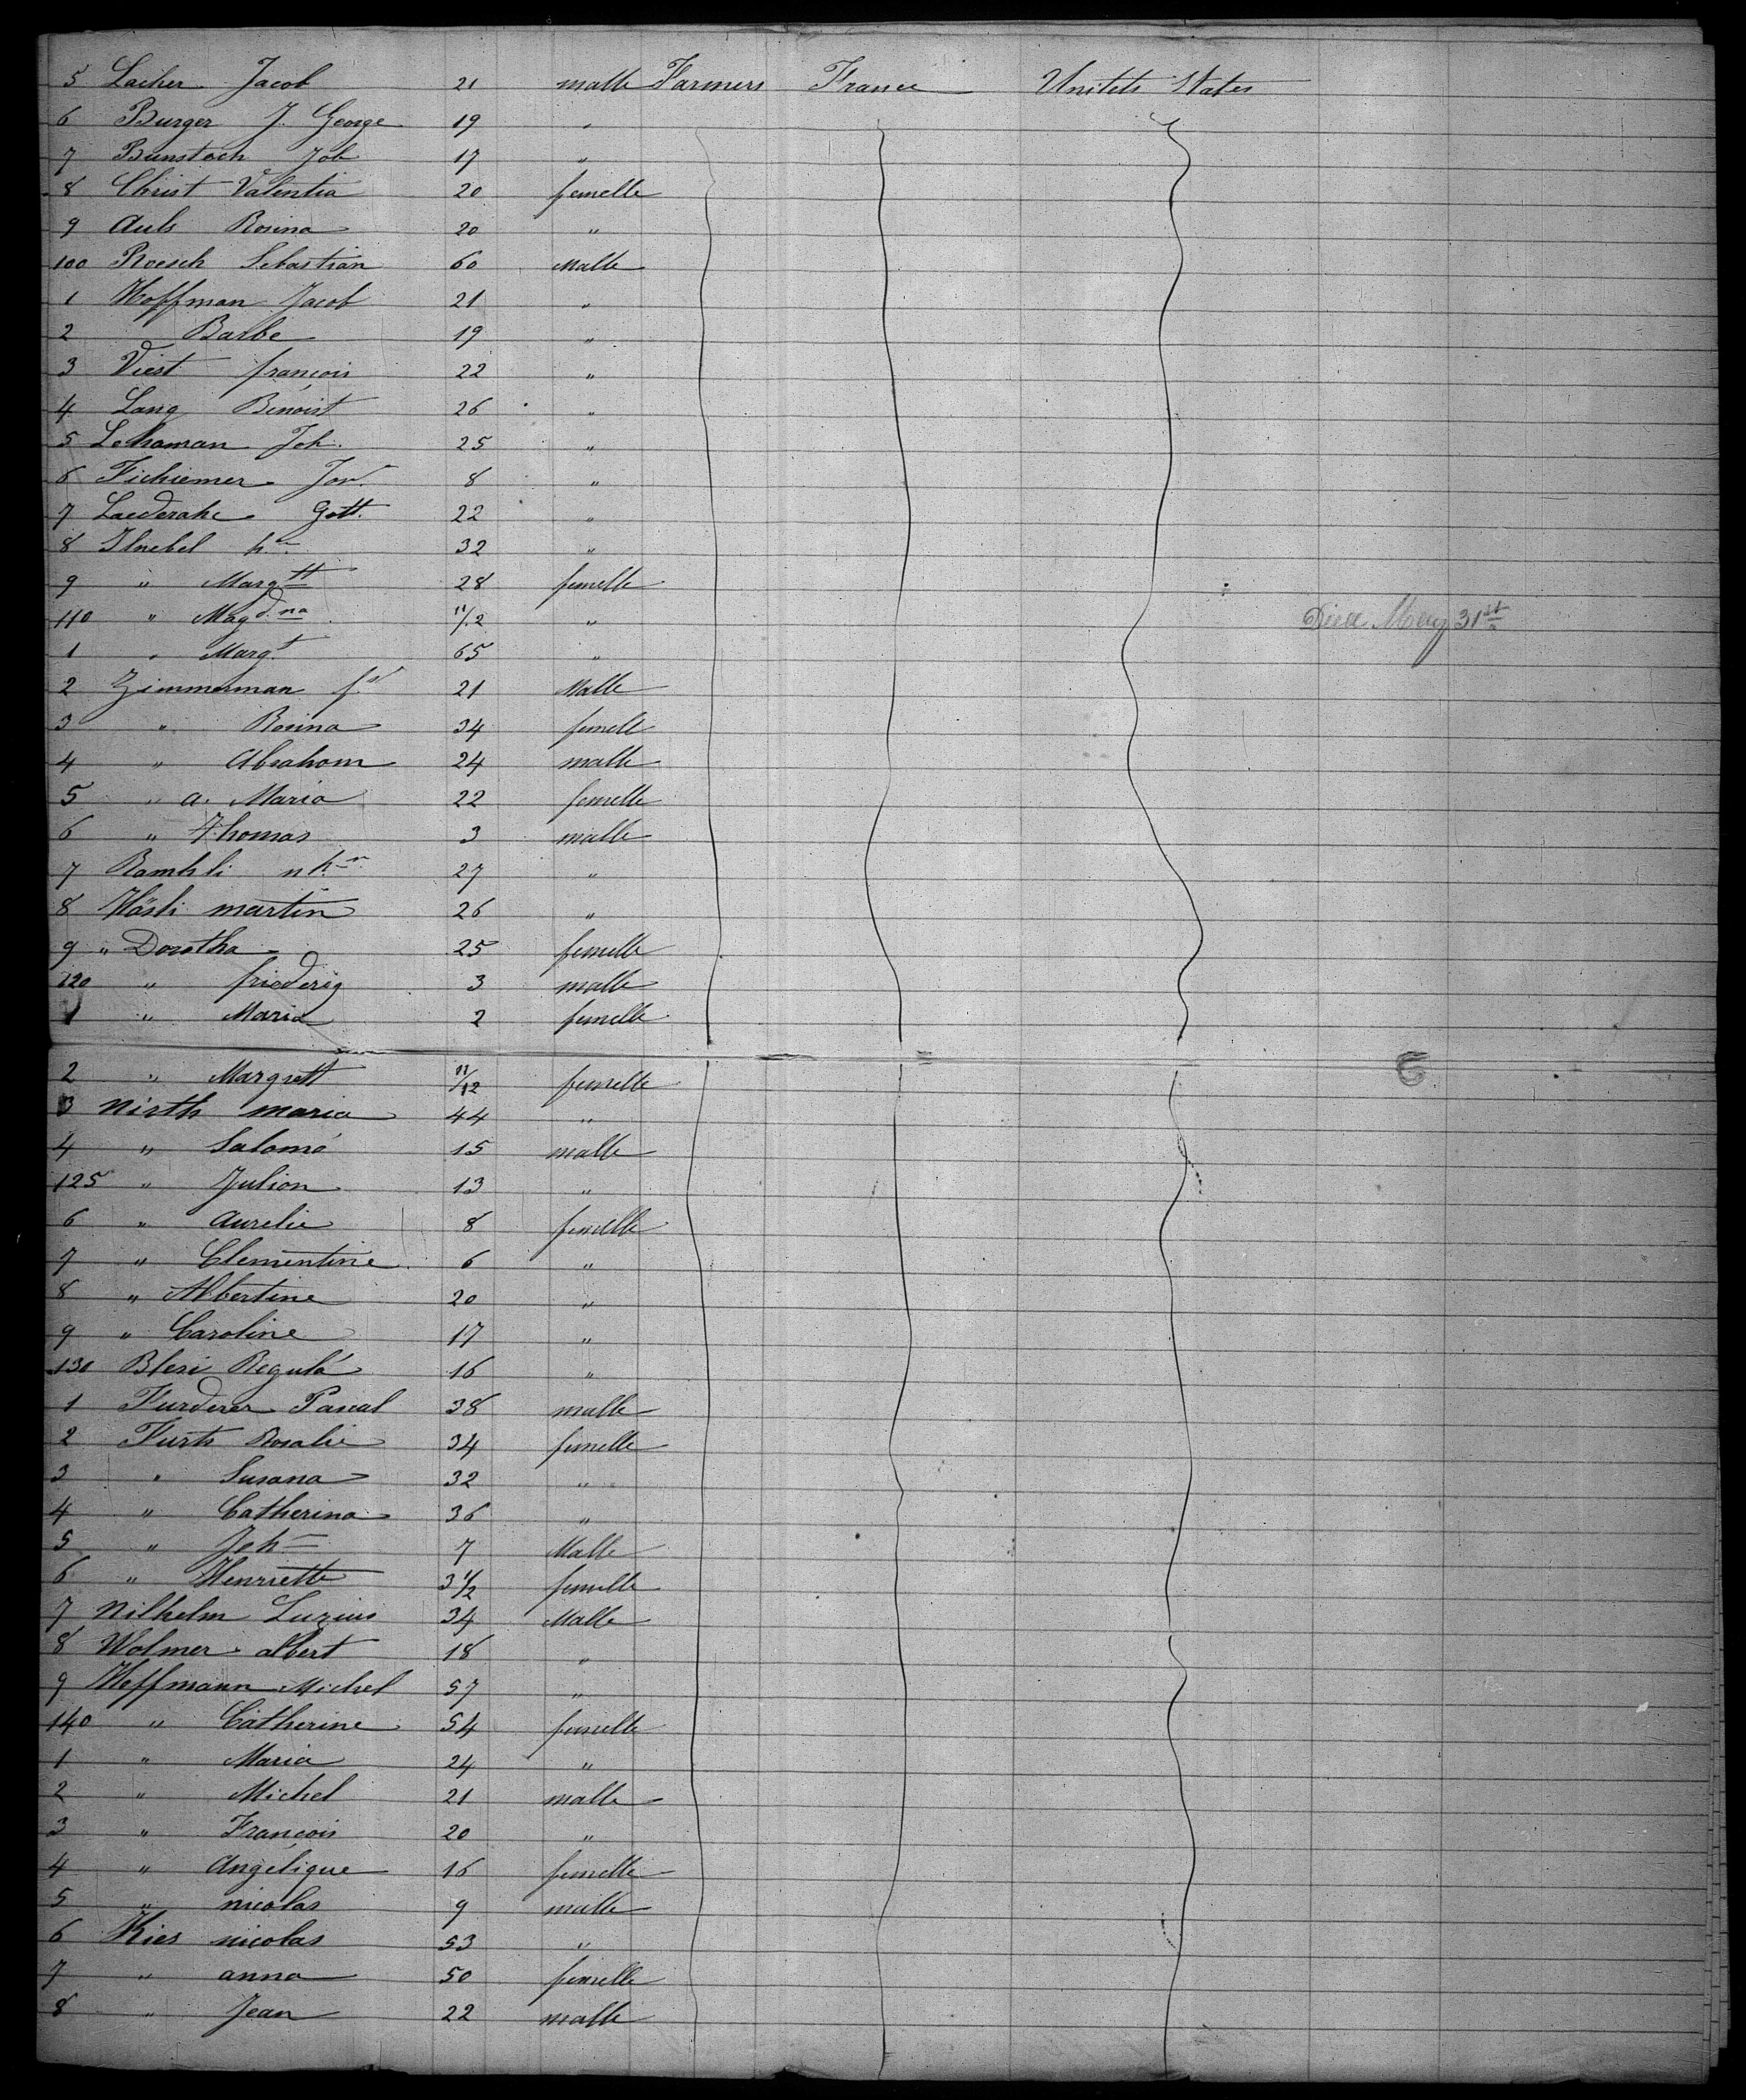 5 Lacher Jacob 21 malle Farmers France Unitets States
6 Burger J. George 19 "
7 Bunstoch Job 17 "
8 Christ Valentia 20 femelle
9 Auls Rosina 20 "
100 Roesch Sebastian 60 Malle
1 Hoffman Jacob 21 "
2 Barbe 19 "
3 Viest françois 22 "
4 Lang Benoist 26 "
5 Lehaman Joh. 25 "
6 Fichiemer Jos. 8 "
7 Laederahe Gott. 22 "
8 h. 32 "
9 " Margtt 28 femelle
110 " Magdna 11/2 " Died May 31st
1 " Margt 65 "
2 Zimmerman 21 Malle
3 " Rosina 34 femelle
4 " Abraham 24 malle
5 " a. Maria 22 femelle
6 " Thomas 3 malle
7 27 "
8 Hösli martin 26 "
9 " Dorotha 25 femelle
120 " friederig 3 malle
1 " Maria 2 femelle
2 " Margrett 11/12 femelle
3 Nirth maria 44 "
4 " Salomé 15 malle
125 " Julian 13 "
6 " Aurelie 8 femelle
7 " Clementine 6 "
8 " Albertine 20 "
9 " Caroline 17 "
130 Blesi Regula 16 "
1 Furderer Pascal 38 malle
2 Furts Rosalie 34 femelle
3 " Susana 32 "
4 " Catherina 36 "
5 " Joh 7 Malle
6 " Henriette 3 1/2 femelle
7 Nilhelm Luzius 34 Malle
8 Wolmer albert 18 "
9 Hoffmann Michel 57 "
140 " Catherine 54 femelle
1 " Maria 24 "
2 " Michel 21 malle
3 " François 20 "
4 " Angélique 16 femelle
5 " nicolas 9 malle
6 Kies nicolas 53 "
7 " anna 50 femelle
8 " Jean 22 malle